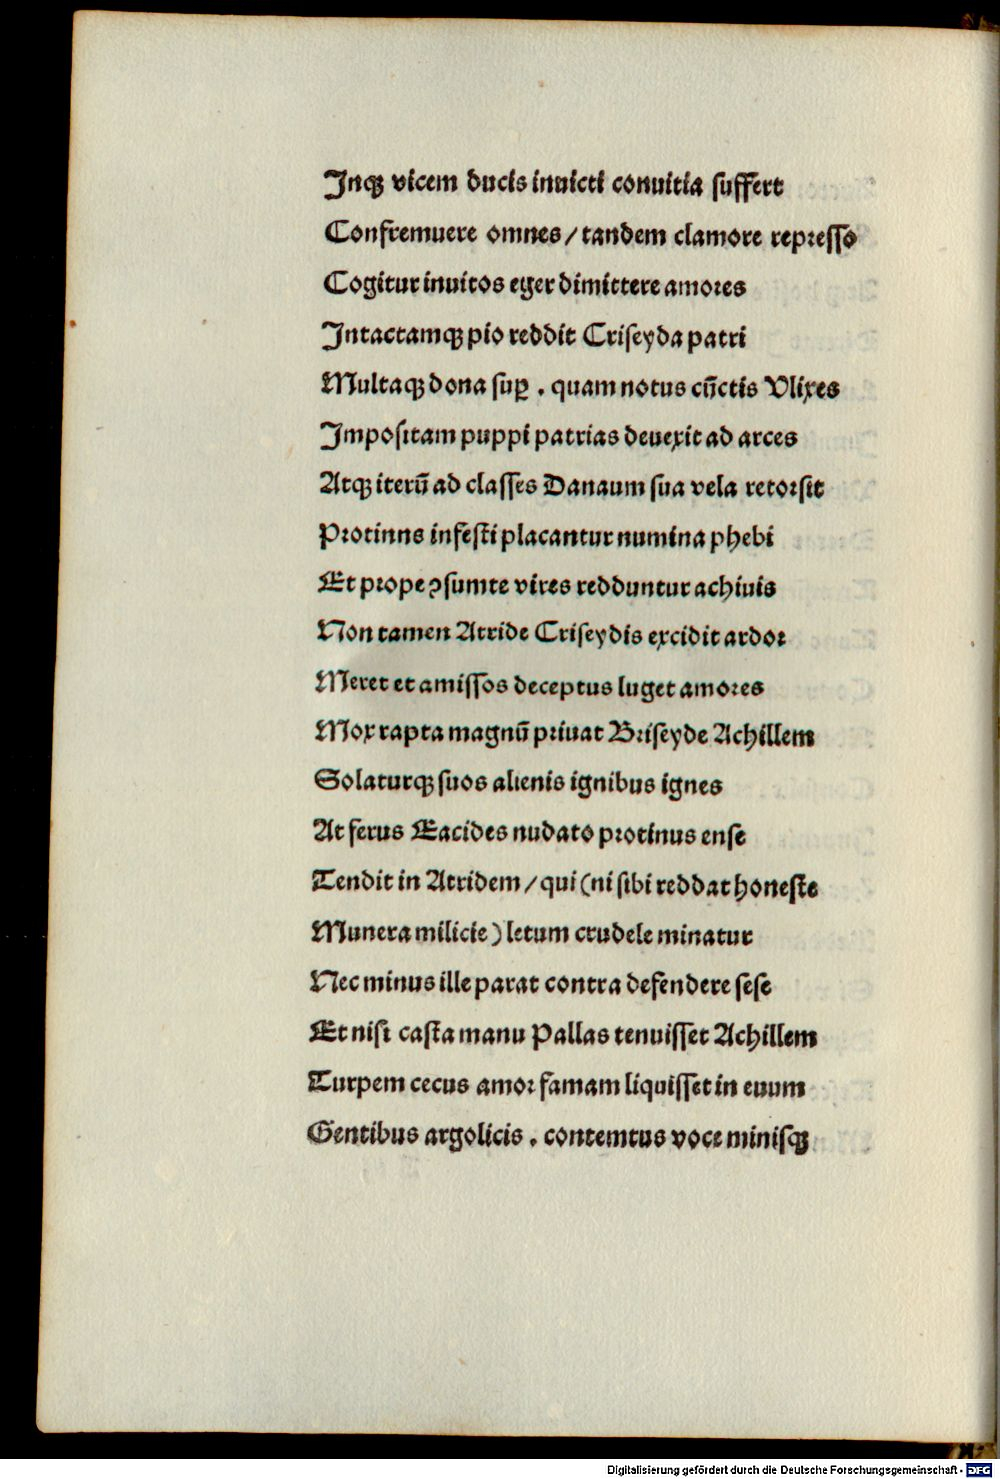 Inqꝫ vicem ducis inuicti conuitia suffert
Confremuere omnes/tandem clamore represso
Cogitur inuitos eger dimittere amores
Intactamqꝫ pio reddit Criseyda patri
Multaqꝫ dona suꝑ . quam notus cūctis Vlixes
Impositam puppi patrias deuexit ad arces
Atqꝫ iterū ad classes Danaum sua vela retorsit
Protinns infesti placantur numina phebi
Et prope ꝯsumte vires redduntur achiuis
Non tamen Atride Criseydis excidit ardor
Meret et amissos deceptus luget amores
Mox rapta magnū priuat Briseyde Achillem
Solaturqꝫ suos alienis ignibus ignes
At ferus Eacides nudato protinus ense
Tendit in Atridem/qui (ni sibi reddat honeste
Munera milicie) letum crudele minatur
Nec minus ille parat contra defendere sese
Et nisi casta manu Pallas tenuisset Achillem
Turpem cecus amor famam liquisset in euum
Gentibus argolicis . contemtus voce minisqꝫ
Digitalisierung gefördert durch die Deutsche Forschungsgemeinschaft - DFG